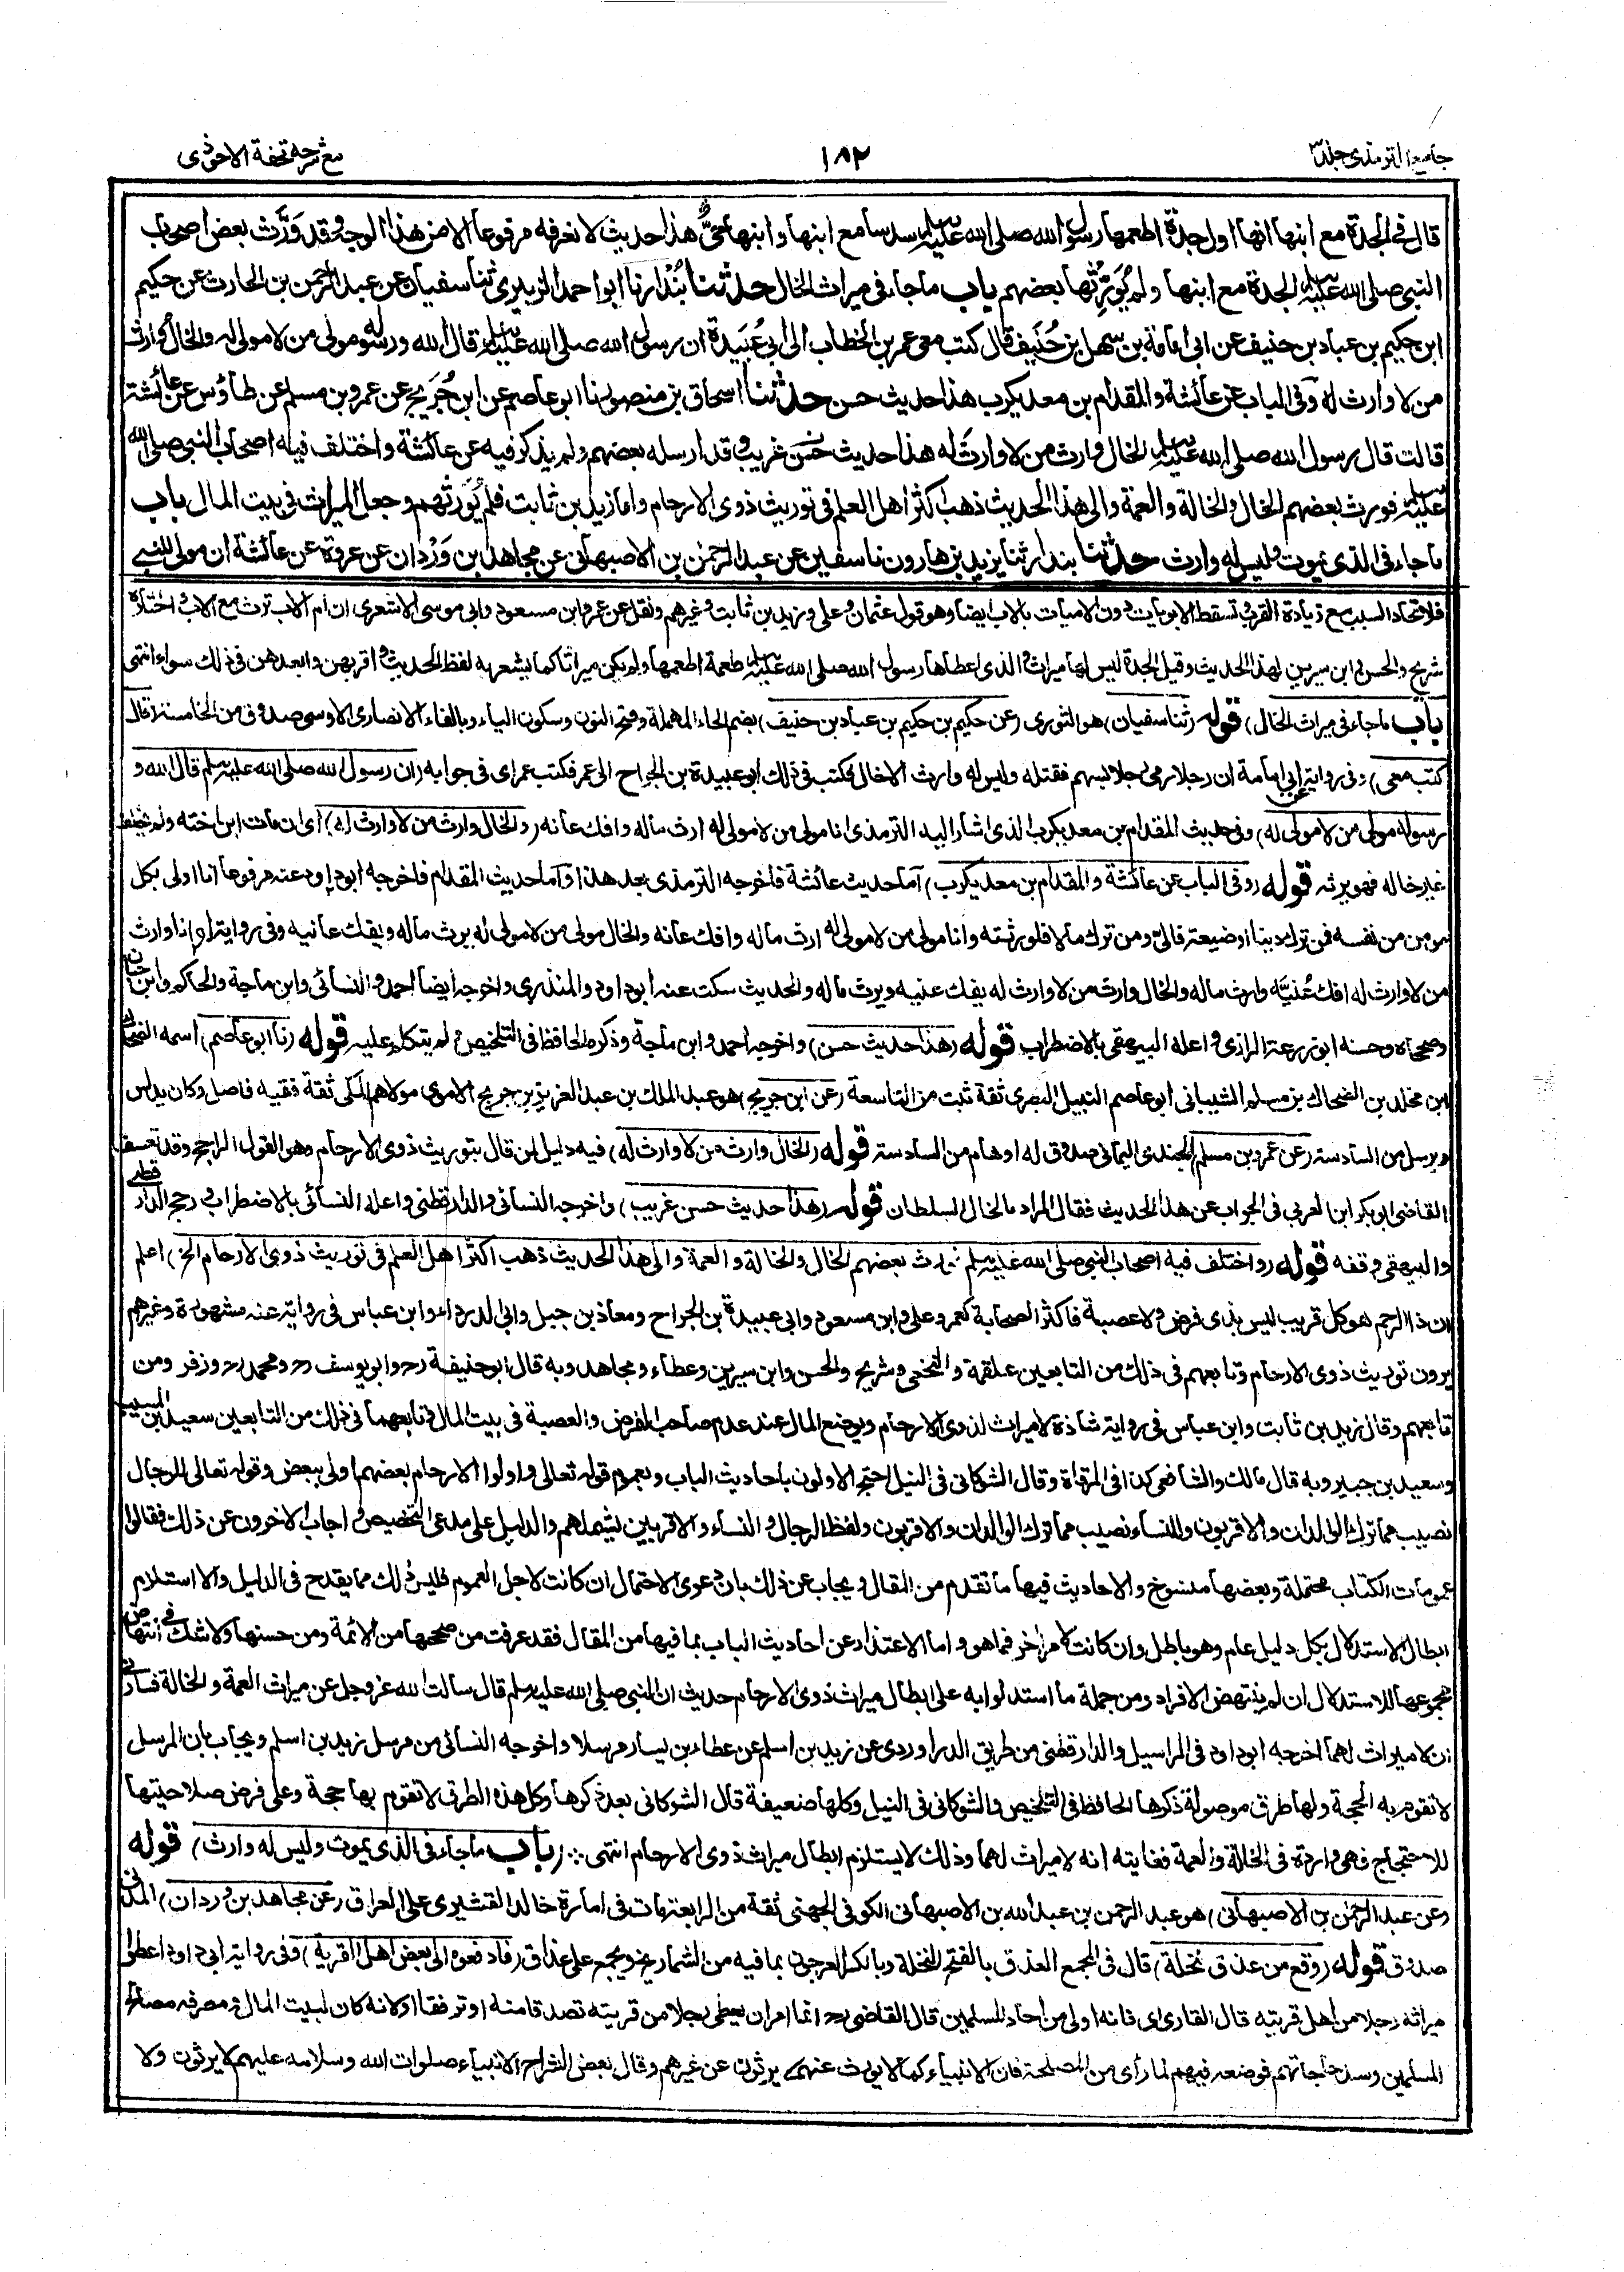 جامع الترمذى جلد٣
١٨٢
مع شرحه تحفة الاحوذى
قال فى الجدة مع ابنها انها اول جدة اطعمها رسول الله صلى الله عليه وسلم سدسا مع ابنها وابنها حىٌّ هذا حديث لا نعرفه مرفوعا الا من هذا الوجه وقد وَرَّث بعض اصحاب
النبى صلى الله عليه وسلم الجدة مع ابنها ولم يُوَرِّثها بعضهم باب ماجاء فى ميراث الخال حدثنا بُنْدار نا ابو احمد الزبيرى ثنا سفيان عن عبد الرحمن بن الحارث عن حكيم
ابن حكيم بن عباد بن حنيف عن ابى امامة بن سهل بن حُنَيف قال كتب معى عمر بن الخطاب الى ابى عُبَيدة ان رسول الله صلى الله عليه وسلم قال الله ورسوله مولى من لا مولى له والخال وارث
من لا وارث له وفى الباب عن عائشة والمقدام بن معديكرب هذا حديث حسن حدثنا اسحاق بن منصور نا ابو عاصم عن ابن جُرَيج عن عمرو بن مسلم عن طاؤس عن عائشة
قالت قال رسول الله صلى الله عليه وسلم الخال وارث من لا وارث له هذا حديث حسن غريب وقد ارسله بعضهم ولم يذكر فيه عن عائشة واختلف فيه اصحاب النبى صلى الله
عليه وسلم فورث بعضهم الخال والخالة والعمة والى هذا الحديث ذهب اكثر اهل العلم فى توريث ذوى الارحام واما زيد بن ثابت فلم يُوَرثهم وجعل الميراث فى بيت المال باب
ماجاء فى الذى يموت وليس له وارث حدثنا بندار ثنا يزيد بن هارون نا سفين عن عبد الرحمن بن الاصبهانى عن مجاهد بن وَرْدان عن عروة عن عائشة ان مولى للنبى
فلاتحاد السبب مع زيادة القرب تسقط الابويات دون الاميات بالاب ايضا وهو قول عثمان وعلى وزيد بن ثابت وغيرهم ونقل عن عمر وابن مسعود وابى موسى الاشعرى ان ام الاب ترث مع الاب واختاره
شريح والحسن وابن سيرين لهذا الحديث وقيل الجدة ليس لها ميراث والذى اعطاها رسول الله صلى الله عليه وسلم طعمة اطعمها ولم يكن ميراثا كما يشعر به لفظ الحديث واقربهن وابعدهن فى ذلك سواء انتهى
باب ماجاء فى ميراث الخال) قوله (ثنا سفيان) هو الثورى (عن حكيم بن حكيم بن عباد بن حنيف) بضم الحاء المهملة وفتح النون وسكون الياء وبالفاء الانصارى الاوسى صدوق من الخامسة (قال
كتب معى) وفى رواية عن ابى امامة ان رجلا رمى رجلا بسهم فقتله وليس له وارث الا خال فكتب فى ذلك ابو عبيدة بن الجراح الى عمر فكتب عمر اى فى جوابه (ان رسول الله صلى الله عليه وسلم قال الله و
رسوله مولى من لا مولى له) وفى حديث المقدام بن معديكرب الذى اشار اليه الترمذى انا مولى من لا مولى له ارث ماله وافك عانه (والخال وارث من لا وارث له) اى ان مات ابن اخته ولم يخلف
غير خاله فهو يرثه قوله (وفى الباب عن عائشة والمقدام بن معديكرب) اما حديث عائشة فاخرجه الترمذى بعد هذا واما حديث المقدام فاخرجه ابوداود عنه مرفوعا انا اولى بكل
مومن من نفسه فمن ترك دينا او ضيعة فالىّ ومن ترك مالا فلورثته وانا مولى من لا مولى له ارث ماله وافك عانه والخال مولى من لا مولى له يرث ماله ويفك عانيه وفى رواية له انا وارث
من لا وارث له افك عُنيَّه وارث ماله والخال وارث من لا وارث له يفك عنيه ويرث ماله والحديث سكت عنه ابو داود والمنذرى واخرجه ايضا احمد والنسائى وابن ماجة والحاكم وابن حبان
وصححاه وحسنه ابو زرعة الرازى واعله البيهقى بالاضطراب قوله (هذا حديث حسن) واخرجه احمد وابن ماجة وذكره الحافظ فى التلخيص ولم يتكلم عليه قوله (نا ابو عاصم) اسمه الضحاك
ابن مخلد بن الضحاك بن مسلم الشيبانى ابو عاصم النبيل البصرى ثقة ثبت من التاسعة (عن ابن جريج) هو عبد الملك بن عبد العزيز بن جريج الاموى مولاهم المكى ثقة فقيه فاضل وكان يدلس
ويرسل من السادسة (عن عمرو بن مسلم) الجندى اليمانى صدوق له اوهام من السادسة قوله (الخال وارث من لا وارث له) فيه دليل لمن قال بتوريث ذوى الارحام وهو القول الراجح وقد تعسف
القاضى ابوبكر ابن العربى فى الجواب عن هذا الحديث فقال المراد بالخال السلطان قوله (هذا حديث حسن غريب) واخرجه النسائى والدارقطنى واعله النسائى بالاضطراب ورجح الدارقطنى
والبيهقى وقفه قوله (واختلف فيه اصحاب النبى صلى الله عليه وسلم فورث بعضهم الخال والخالة والعمة والى هذا الحديث ذهب اكثر اهل العلم فى توريث ذوى الارحام الخ) اعلم
ان ذا الرحم هو كل قريب ليس بذى فرض ولا عصبة فاكثر الصحابة كعمر وعلى وابن مسعود وابى عبيدة بن الجراح ومعاذ بن جبل وابى الدرداء وابن عباس فى رواية عنه مشهورة وغيرهم
يرون توريث ذوى الارحام وتابعهم فى ذلك من التابعين علقمة والنخعى وشريح والحسن وابن سيرين وعطاء ومجاهد وبه قال ابو حنيفة رح وابو يوسف رح ومحمد رح وزفر ومن
تابعهم وقال زيد بن ثابت وابن عباس فى رواية شاذة لا ميراث لذوى الارحام ويوضع المال عند عدم صاحب الفرض والعصبة فى بيت المال وتابعهما فى ذلك من التابعين سعيد بن المسيب
وسعيد بن جبير وبه قال مالك والشافعى كذا فى المرقاة وقال الشوكانى فى النيل احتج الاولون باحاديث الباب وبعموم قوله تعالى واولوا الارحام بعضهم اولى ببعض وقوله تعالى للرجال
نصيب مما ترك الوالدان والاقربون وللنساء نصيب مما ترك الوالدان والاقربون ولفظ الرجال والنساء والاقربين يشملهم والدليل على مدعى التخصيص واجاب الاخرون عن ذلك فقالوا
عمومات الكتاب محتملة وبعضها منسوخ والاحاديث فيها ما تقدم من المقال ويجاب عن ذلك بان دعوى الاحتمال ان كانت لاجل العموم فليس ذلك مما يقدح فى الدليل والا استلزم
ابطال الاستدلال بكل دليل عام وهو باطل وان كانت لامر اخر فما هو واما الاعتذار عن احاديث الباب بما فيها من المقال فقد عرفت من صححها من الائمة ومن حسنها ولا شك فى انتهاض
مجموعها للاستدلال ان لم ينتهض الافراد ومن جملة ما استدلوا به على ابطال ميراث ذوى الارحام حديث ان النبى صلى الله عليه وسلم قال سالت الله عز وجل عن ميراث العمة والخالة فسارنى
ان لا ميراث لهما اخرجه ابوداود فى المراسيل والدارقطنى من طريق الدراوردى عن زيد بن اسلم عن عطاء بن يسار مرسلا واخرجه النسائى من مرسل زيد بن اسلم ويجاب بان المرسل
لا تقوم به الحجة ولها طرق موصولة ذكرها الحافظ فى التلخيص والشوكانى فى النيل وكلها ضعيفة قال الشوكانى بعد ذكرها وكل هذه الطرق لا تقوم بها حجة وعلى فرض صلاحيتها
للاحتجاج فهى واردة فى الخالة والعمة فغايته انه لا ميراث لهما وذلك لا يستلزم ابطال ميراث ذوى الارحام انتهى؞ (باب ماجاء فى الذى يموت وليس له وارث) قوله
(عن عبد الرحمن بن الاصبهانى) هو عبد الرحمن بن عبد الله بن الاصبهانى الكوفى الجهنى ثقة من الرابعة مات فى امارة خالد القشيرى على العراق (عن مجاهد بن وردان) المدنى
صدوق قوله (وقع من عذق نخلة) قال فى المجمع العذق بالفتح النخلة وبالكسر العرجون بما فيه من الشماريخ ويجمع على عذاق (فادفعوه الى بعض اهل القرية) وفى رواية ابى داود اعطوا
ميراثه رجلا من اهل قريته قال القارى اى فانه اولى من احاد المسلمين قال القاضى رح انما امر ان يعطى رجلا من قريته تصدقا منه او ترفقا او لانه كان لبيت المال ومصرفه مصالح
المسلمين وسد حاجاتهم فوضعه فيهم لما رأى من المصلحة فان الانبياء كما لا يورث عنهم لا يرثون عن غيرهم وقال بعض الشراح الانبياء صلوات الله وسلامه عليهم لا يرثون ولا